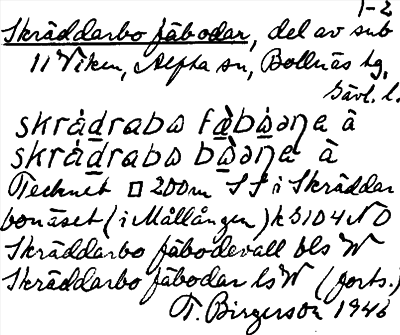 1-2
Skräddarbo fäbodar, del av sub
11 Viken, Alfta sn, Bollnäs tg,
Gävl. l.
skrá̀d̲rabω fæ̀bὼ̲əŋa â
skrá̀d̲rabω bὼ̲əŋa â
Tecknet □ 200m SS i Skräddar
bonäset (i Mållången) k 3104 NO
Skräddarbo fäbodevall bls W
Skräddarbo fäbodar ls W (forts.)
T. Birgerson 1946